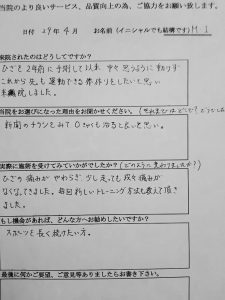 当院のより良いサービス、品質向上の為、ご協力をお願い致します。
日付 29年 4月 お名前(イニシャルでも結構です) M I
来院されたのはどうしてですか?
ひざを2年前に手術して以来、中々思うように動けず
これから先、運動できる体作りをしたいと思い
来院しました。
当院をお選びになった理由をお聞かせください。
新聞のチラシをみて
と思い。
実際に施術を受けてみていかがでしたか?(どのように変わりましたか?)
ひざの痛みがやわらぎ、少し走っても段々痛みが
なくなってきました。毎回新しいトレーニング方法も教えて頂き
ました。
もし機会があれば、どんな方へお勧めしたいですか?
スポーツを長く続けたい方。
最後に何かご要望、ご意見等ありましたらお書き下さい。